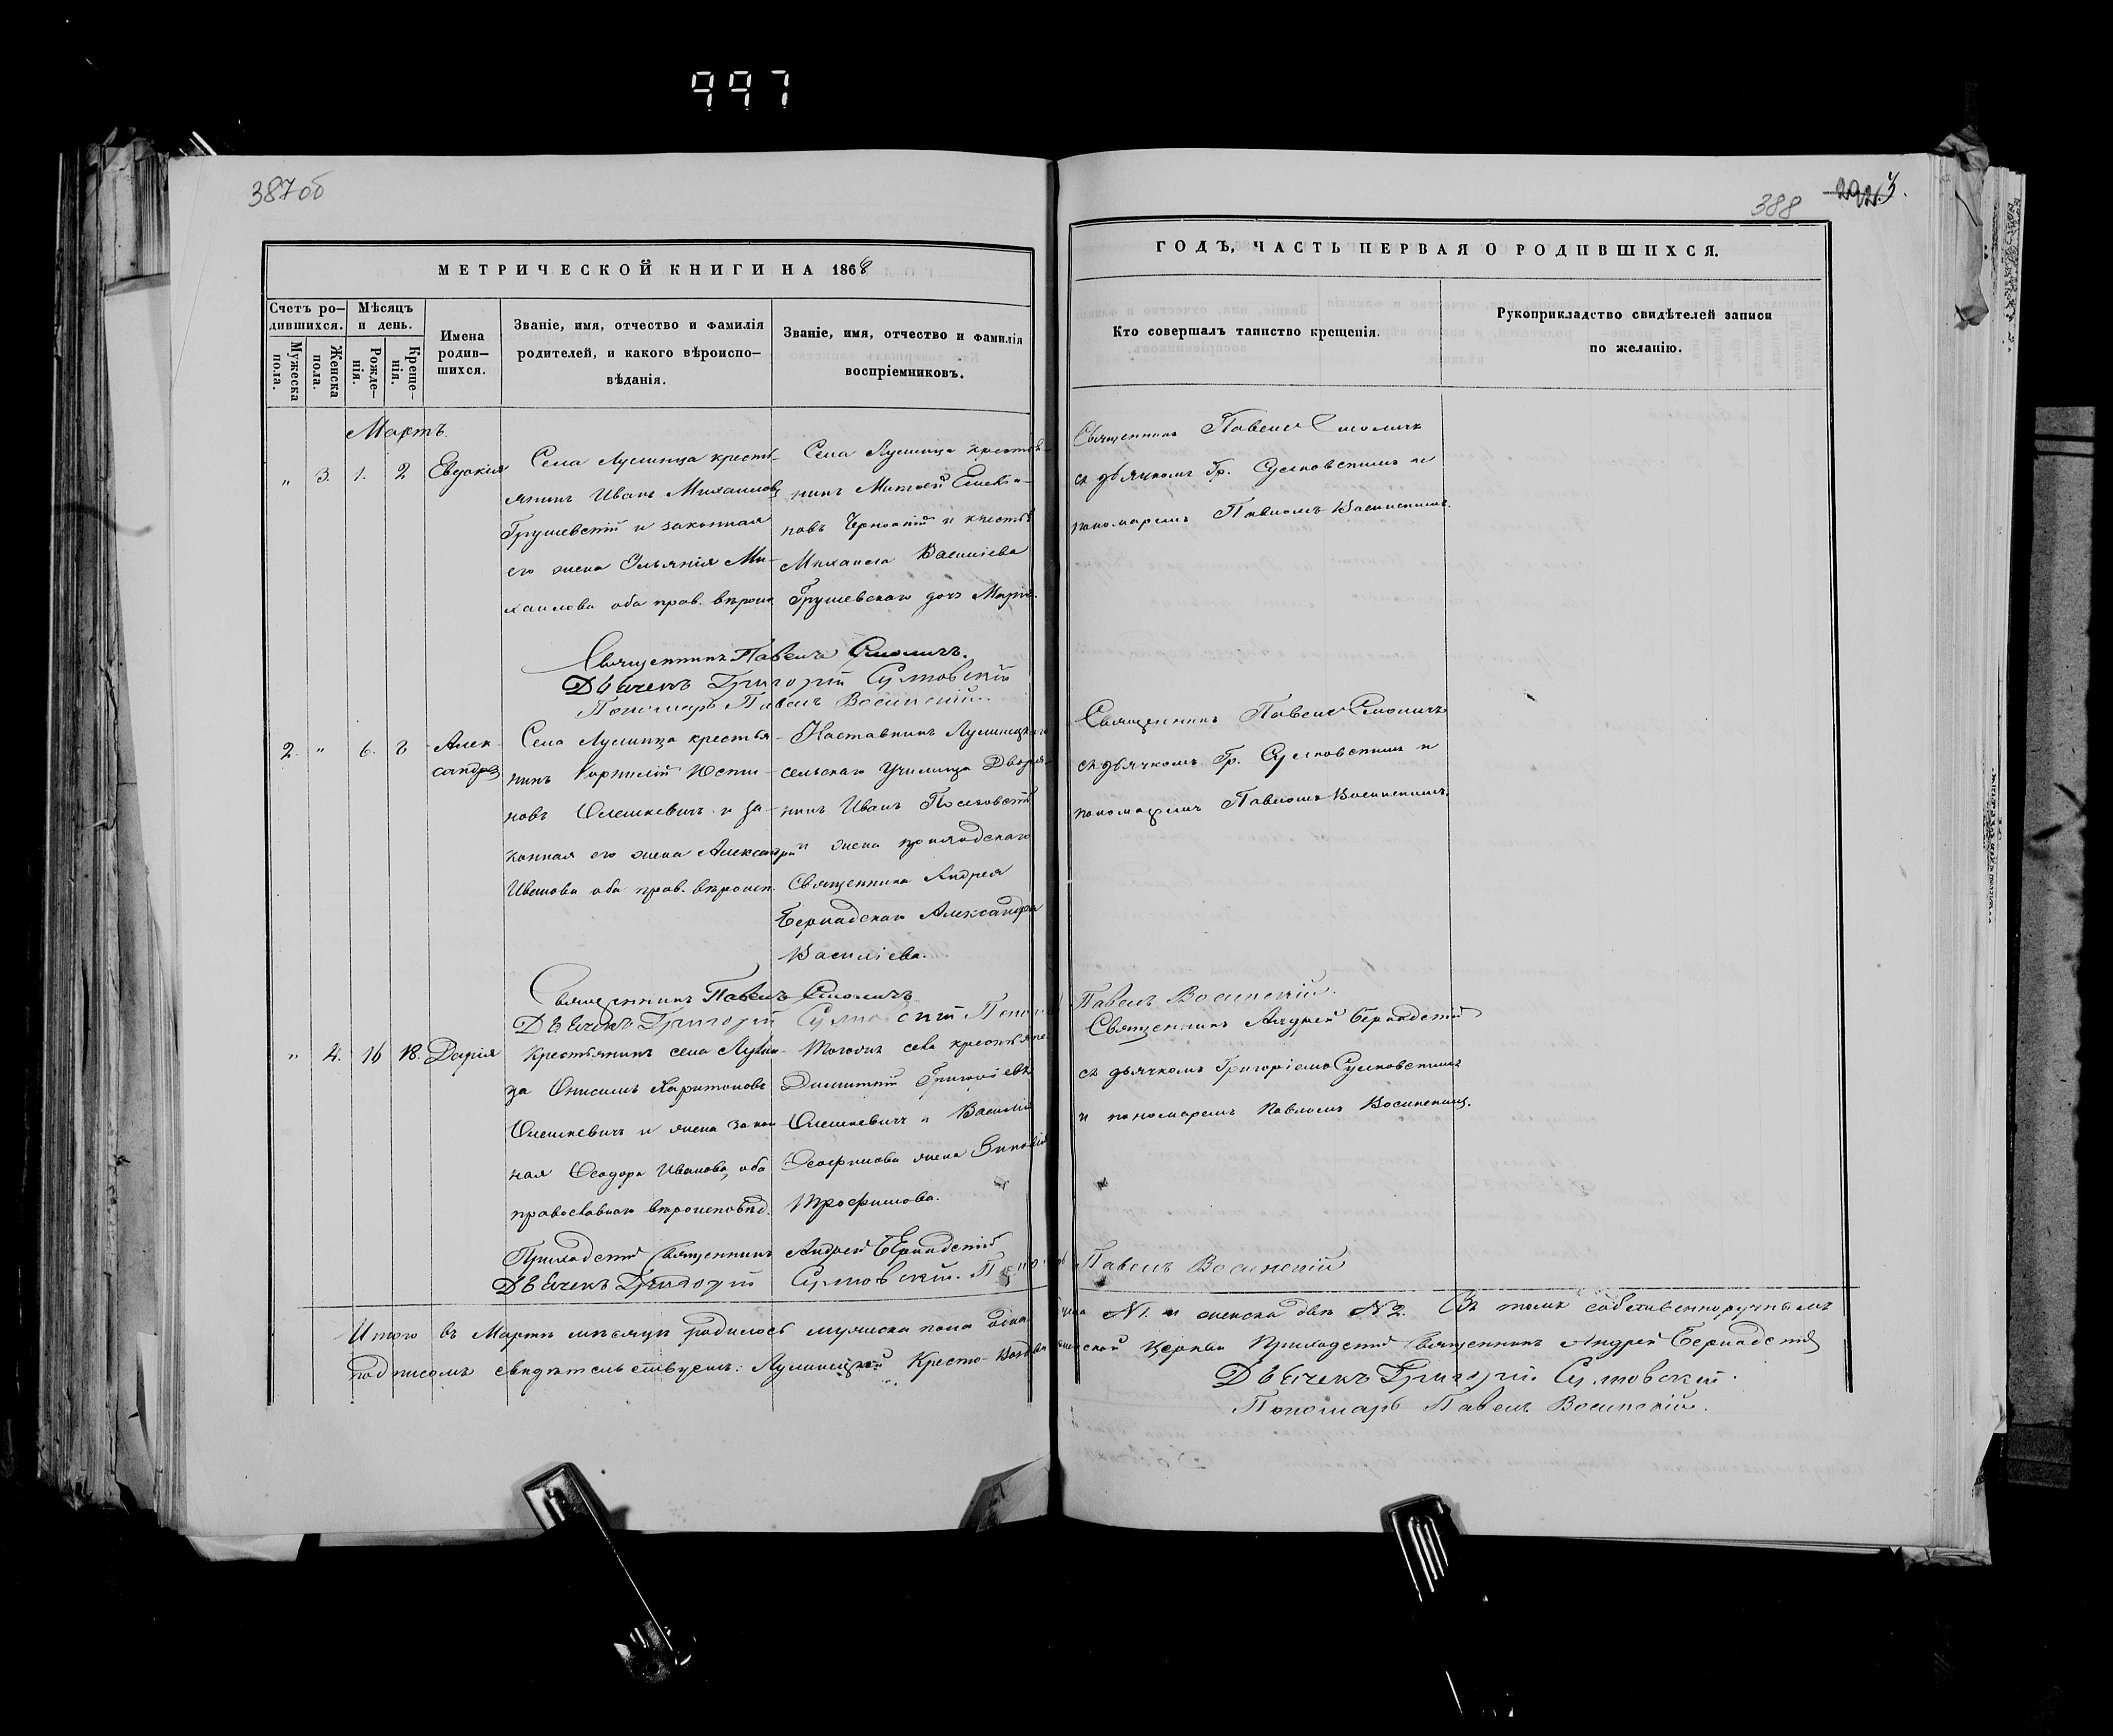 997
387об
388
292. 3.
МЕТРИЧЕСКОЙ КНИГИ НА 1868
ГОДЪ, ЧАСТЬ ПЕРВАЯ О РОДИВШИХСЯ.
Счетъ ро-
дившихся.
Мужеска
пола.
Женска
пола.
Мѣсяцъ
и день.
Рожде-
нія.
Креще-
нія.
Имена
родив-
шихся.
Званіе, имя, отчество и фамилія
родителей, и какого вѣроиспо-
вѣданія.
Званіе, имя, отчество и фамилія
воспріемниковъ.
Кто совершалъ таинство крещенія.
Рукоприкладство свидѣтелей записи
по желанію.
Мартъ.
„ 3. 1. 2 Евдокия
Села Лулинца кресть-
янинъ Иванъ Михаиловъ
Грушевскій и законная
его жена Ульянія Ми-
хаилова оба прав. вѣроис
Села Лулинца крестья-
нинъ Матвей
новъ и крестья
Михаила Василіева
Грушевскаго дочь Марія.
Священникъ Павелъ Смоличъ
съ дьячкомъ Гр. Сулковскимъ и
пономаремъ Павломъ Восинскимъ.
Священникъ Павелъ Смоличъ.
Дьячекъ Григорій Сулковскій
Пономарь Павелъ Восинскій.
2. „ 6. 8 Алек-
сандръ
Села Лулинца крестья-
нинъ Корнилій Юсти-
новъ Олешкевичъ и за-
конная его жена Александра
Иванова оба прав. вѣроисп.
Наставникъ Лулинецкаго
сельскаго Училища Дворя-
нинъ Иванъ
и жена приходскаго
Священника Андрея
Бернадскаго Александра
Василіева.
Священникъ Павелъ Смоличъ
съ дьячкомъ Гр. Сулковскимъ и
пономаремъ Павломъ Восинскимъ
Священникъ Павелъ Смоличъ
Дьячекъ Григорій Сулковскій Пономарь Павелъ Восинскій.
„ 4. 16 18. Дарія
Крестьянинъ села Лулин-
ца Онисимъ Харитоновъ
Олешкевичъ и жена закон
ная Ѳеодора Иванова, оба
православнаго вѣроисповѣд.
Тогожъ села крестьяне
Димитрій Григоріевъ
Олешкевичъ и Василія
жена Зиновія
Трофимова.
Священникъ Андрей Бернадскій
съ дьячкомъ Григоріемъ Сулковскимъ
и пономаремъ Павломъ Восинскимъ.
Приходскій Священникъ Андрей Бернадскій
Дьячекъ Григорій Сулковскій. Пономарь Павелъ Восинскій
Итого въ Мартѣ мѣсяцѣ родилось мужеска пола одна душа №1. и женска двѣ №2. Въ томъ собственноручнымъ
подписомъ свидѣтельствуемъ: Лулинецкой Кресто-Воздвиженской Церкви Приходскій Священникъ Андрей Бернадскій
Дьячекъ Григорій Сулковскій.
Пономарь Павелъ Восинскій.